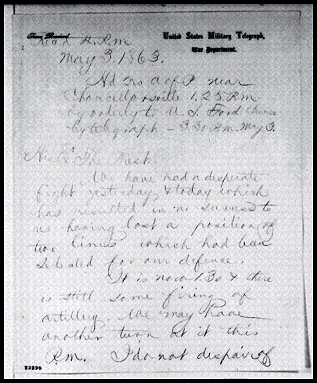 Time Received
United States Military Telegraph,
War Department.
4 P.M
May 3, 1863.
Hd Qrs A of P near
Chancellorsville 1.25 P.M
by orderly to U.S. Ford thence
by telegraph - 3.30 P.M. May 3.
The Prest
We have had a desperate
fight yesterday & today which
has resulted in no success to
us having lost a position of
two lines which had been
selected for our defence.
It is now 1.30 & there
is still some firing of
artillery. We may have
another turn at it this
P.M. I do not despair of